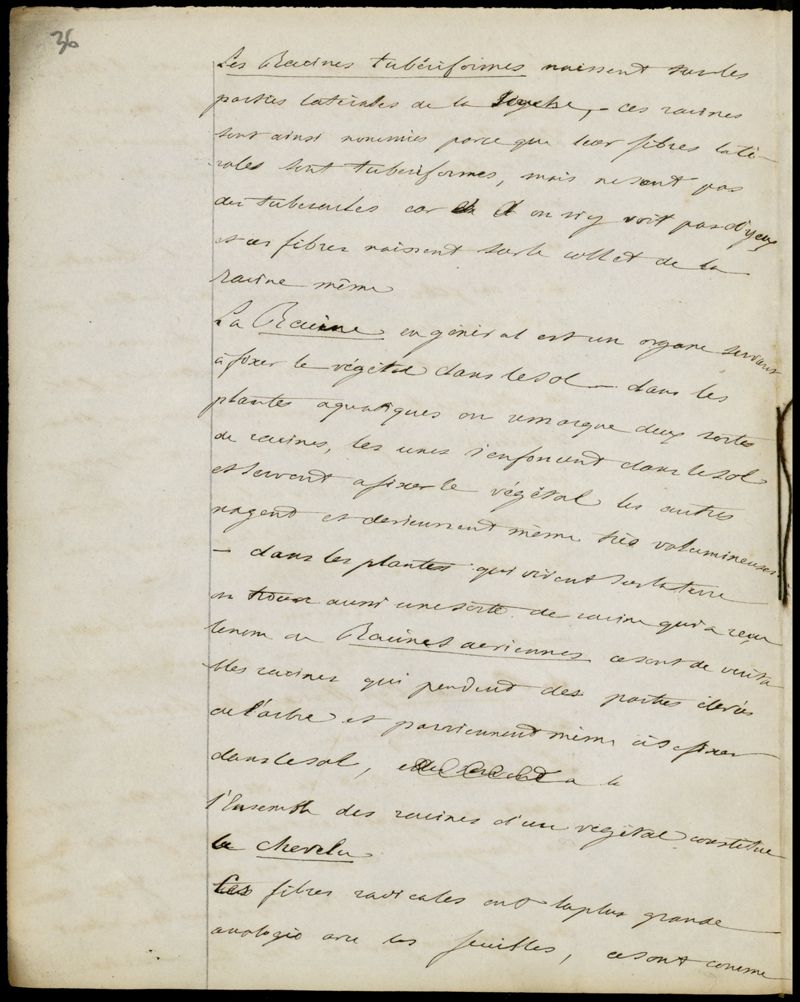 36
Les Racines tubériformes naissent sur les
parties latérales de la souche, - ces racines
sont ainsi nommées parce que leur fibres laté-
rales sont tuberiformes, mais ne sont pas
des tubercules car on n'y voit pas d'yeux
et ces fibres naissent sur le collet de la
racine même
La Racine en général est un organe servant
à fixer le végétal dans le sol - dans les
plantes aquatiques on remarque deux sortes
de racines, les unes s'enfoncent dans le sol
et servent a fixer le végétal les autres
nagent et deviennent même très volumineuses
- dans les plantes qui vivent sur la terre
on trouve aussi une sorte de racine qui a reçu
le nom de Racines aeriennes ce sont de verita
bles racines qui pendent des parties élevées
de l'arbre et parviennent même à se fixer
dans le sol, a le
l'Ensemble des racines d'un végétal constitue
le chevelu
Les fibres radicales ont la plus grande
analogie avec les feuilles, ce sont comme